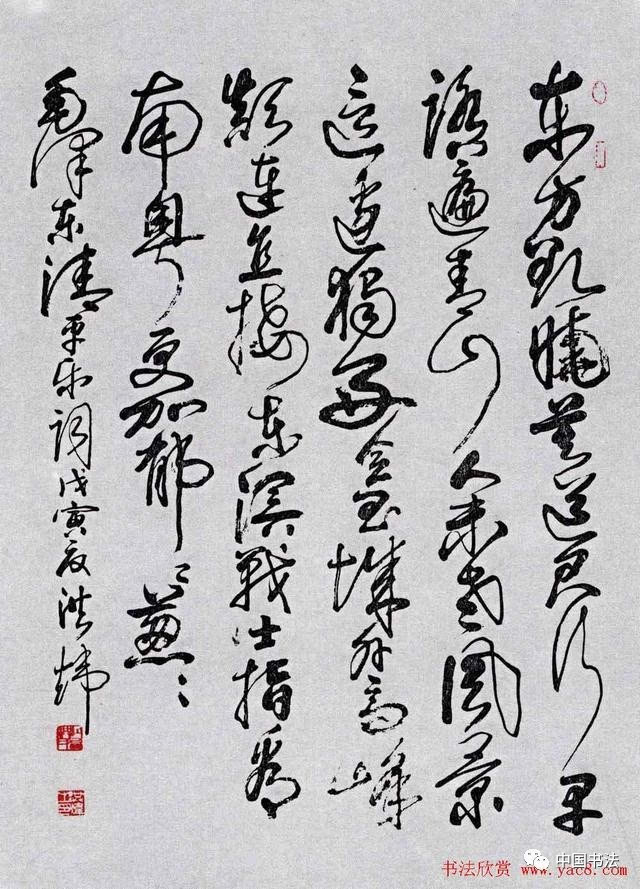 东方欲曉莫道君行早
踏遍青山人未老风景
这边獨好会昌城外高峰
颠连直接东溟戰士指看
南粤更加郁〻葱〻
毛泽东清平乐词戊寅夏洪炜
中国书法
书法欣赏 www.yac8.com